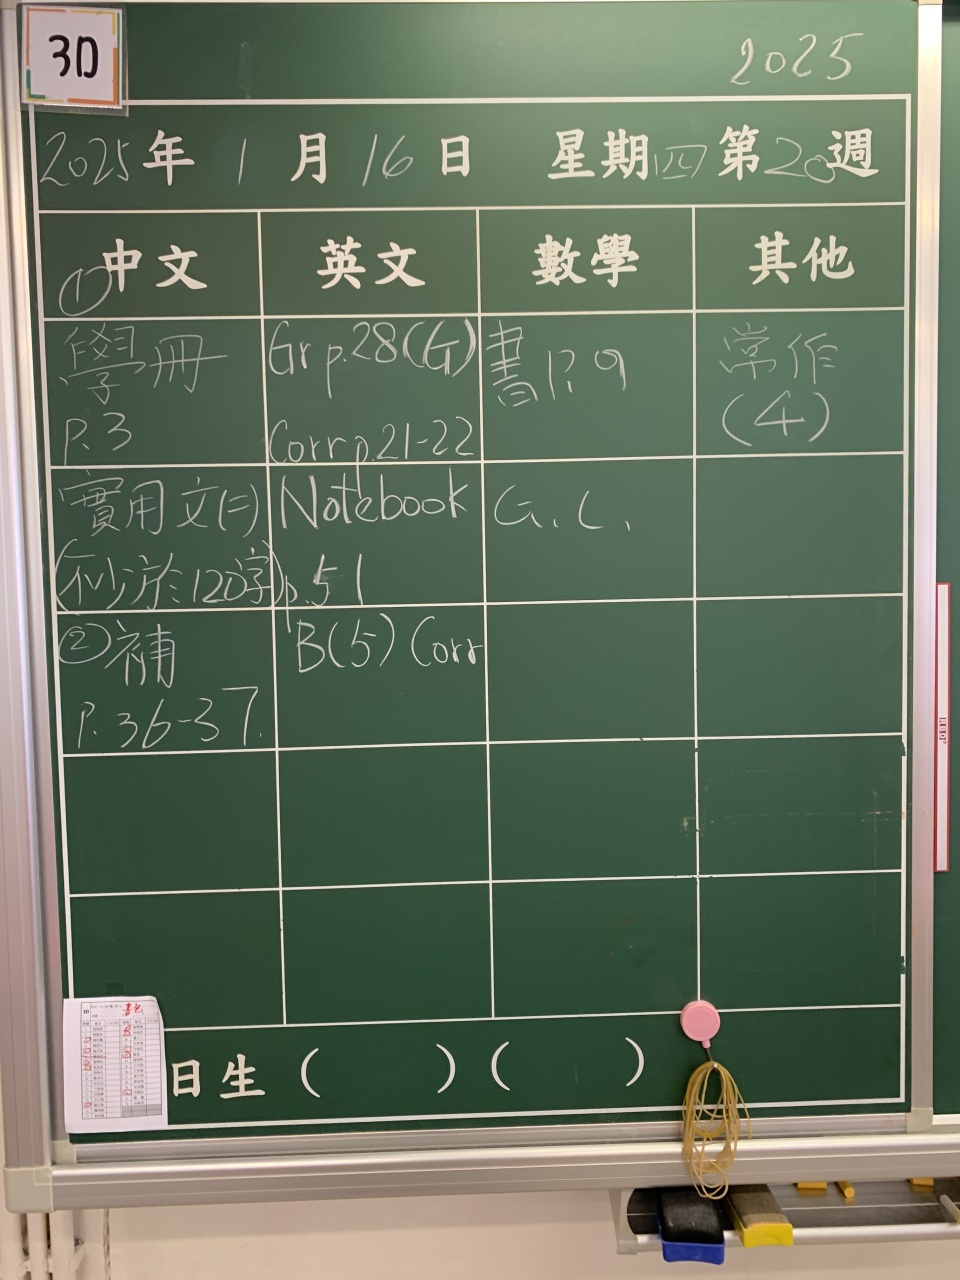 3D
2025
2025年1月16日 星期四 第20週
①中文 英文 數學 其他
學冊
P.3
實用文(二)
(不少於120字)
②補
P.36-37.
Gr p.28(G)
Corr p.21-22
Notebook
p.51
B(5) Corr
書 P.9
G.C.
常作
(4)
日生 ( ) ( )
3D
書包